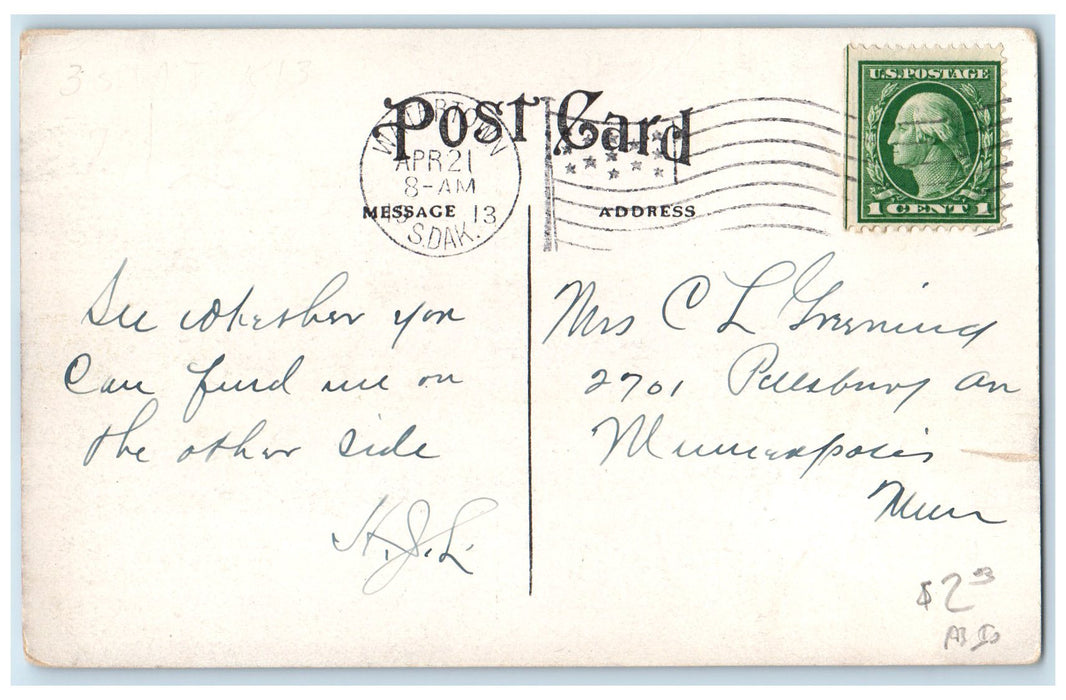 Post Card
WATERTOWN
APR 21
8-AM
13
S.DAK.
U.S. POSTAGE
1 CENT 1
MESSAGE
ADDRESS
See whether you
Can find me on
the other side
H.J.L.
Mrs C L Greening
2701 Pillsbury Av
Minneapolis
Minn
$2